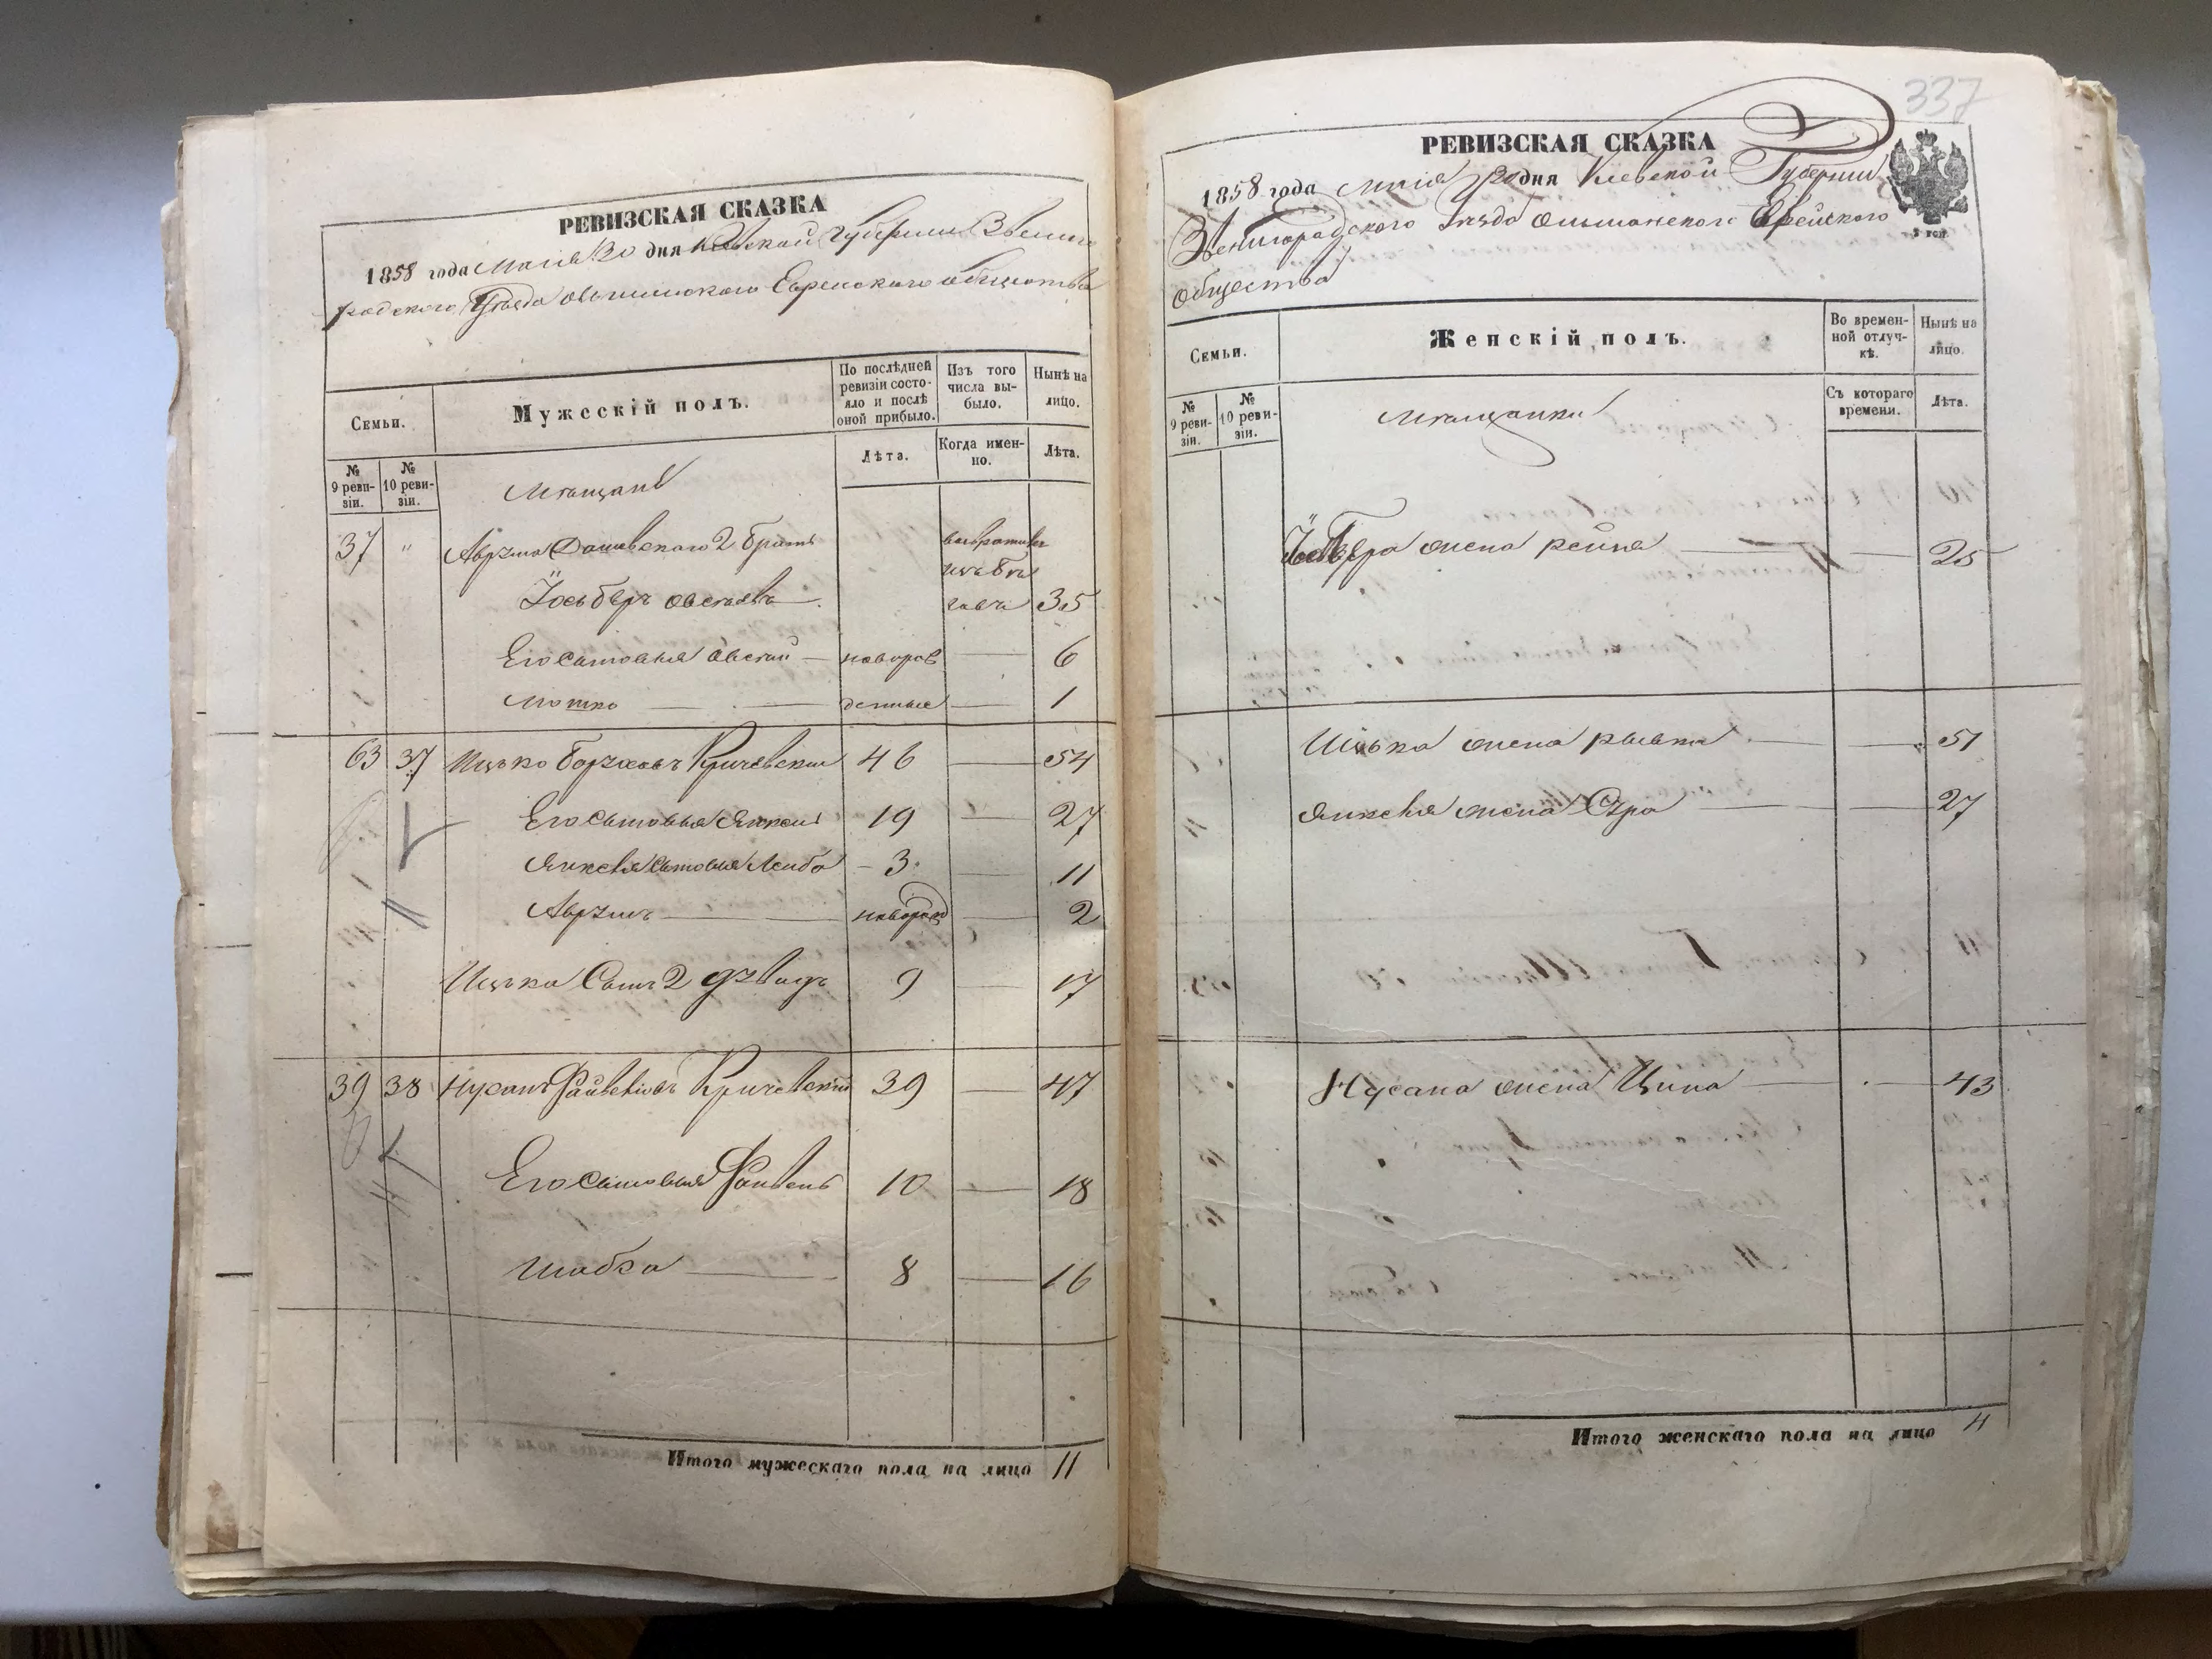 РЕВИЗСКАЯ СКАЗКА
1858 года Мая 20 дня Киевской Губернии Звениго
родского Уѣзда Ольшанского Еврейского общества
Семьи.
Мужескій полъ.
По послѣдней ревизіи состояло и послѣ оной прибыло.
Изъ того числа выбыло.
Нынѣ на лицо.
№ 9 ревизіи.
№ 10 ревизіи.
Лѣта.
Когда именно.
Лѣта.
Мѣщане
37 " Аврума 2 братъ
Іось беръ Овсѣевъ 35
Его сыновья Овсѣй новорож 6
Мотко денные 1
63 37 Ицько Борухов Кричевский 46 54
Его сыновья Янкель 19 27
Янкеля сыновья Лейба 3 11
Аврумъ новорожд 2
Ицька Сынъ 2 Дувидъ 9 17
39 38 Нусанъ Файвелевъ Кричевский 39 47
Его сыновья Файвель 10 18
Шабса 8 16
Итого мужескаго пола на лицо 11
337
РЕВИЗСКАЯ СКАЗКА
1858 года Мая 20 дня Киевской Губернии
Звенигородского Уѣзда Ольшанского Еврейского
общества
Семьи.
Женскій полъ.
Во временной отлучкѣ.
Нынѣ на лицо.
№ 9 ревизіи.
№ 10 ревизіи.
Съ котораго времени.
Лѣта.
Мѣщанки
Іось Бера жена Рейза 25
Ицька жена Рывка 51
Янкеля жена Сура 27
Нусана жена Ципа 43
Итого женскаго пола на лицо 4